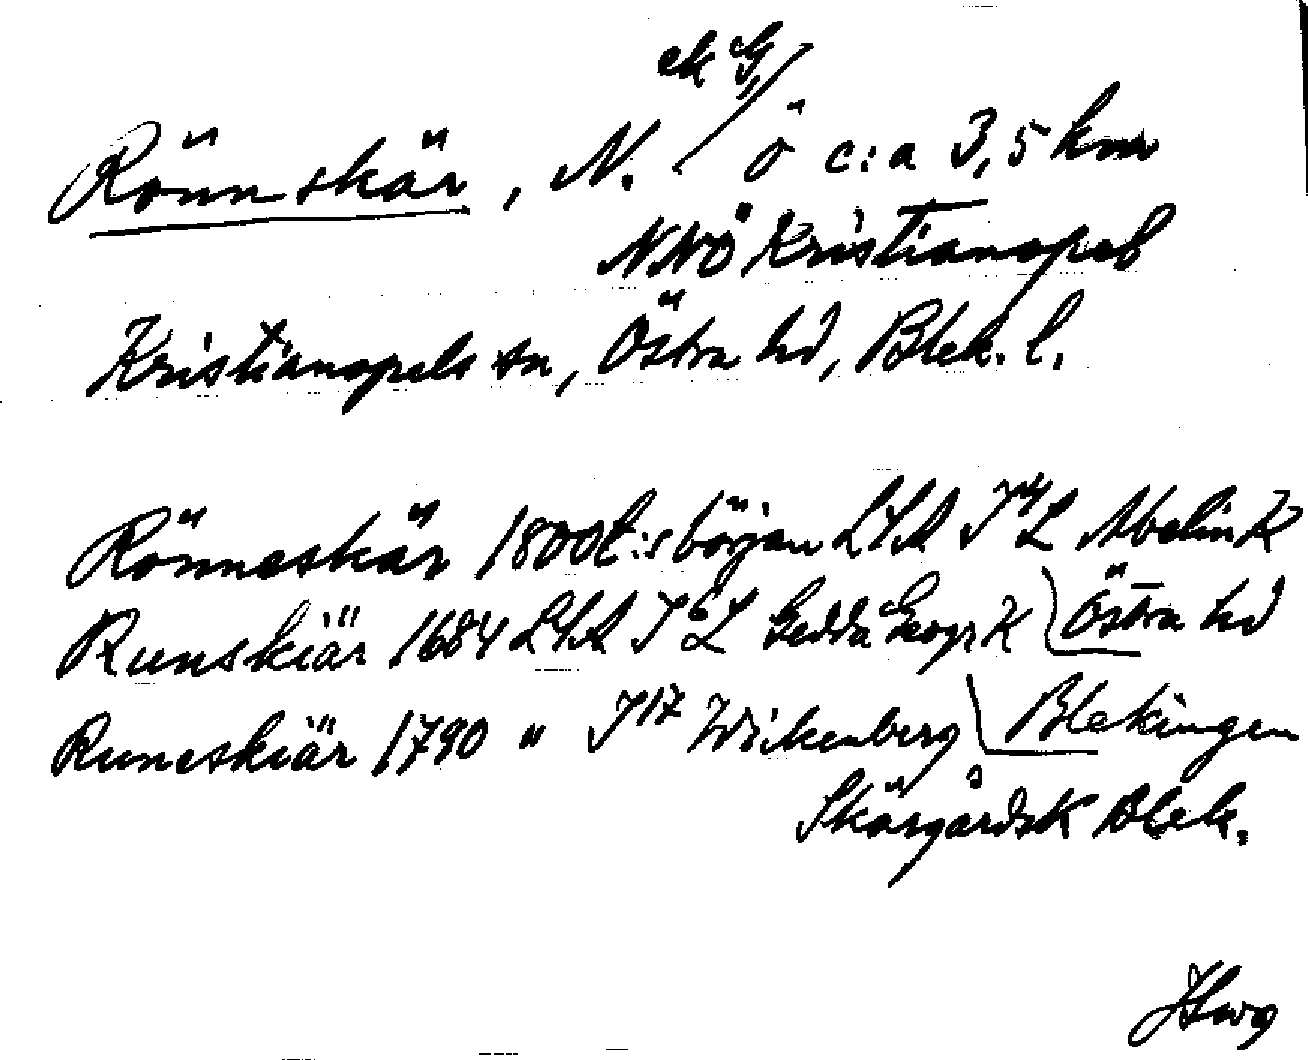 ek G/
Rönnskär, N. ö c:a 3,5 km
NNÖ Kristianopel
Kristianopels sn, Östra hd, Blek. l.
Rönneskär 1800t:s början LSA Abelin K
Runskiär 1684 LSA Gedda Geogr K Östra hd
Runeskiär 1790 " J17 Wikenberg Blekingen
Skärgårdsk Blek.